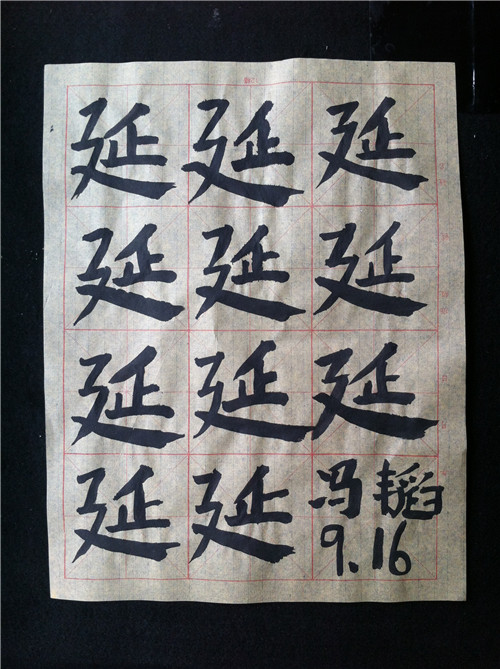 延延延
延延延
延延延
延延冯韬
9.16